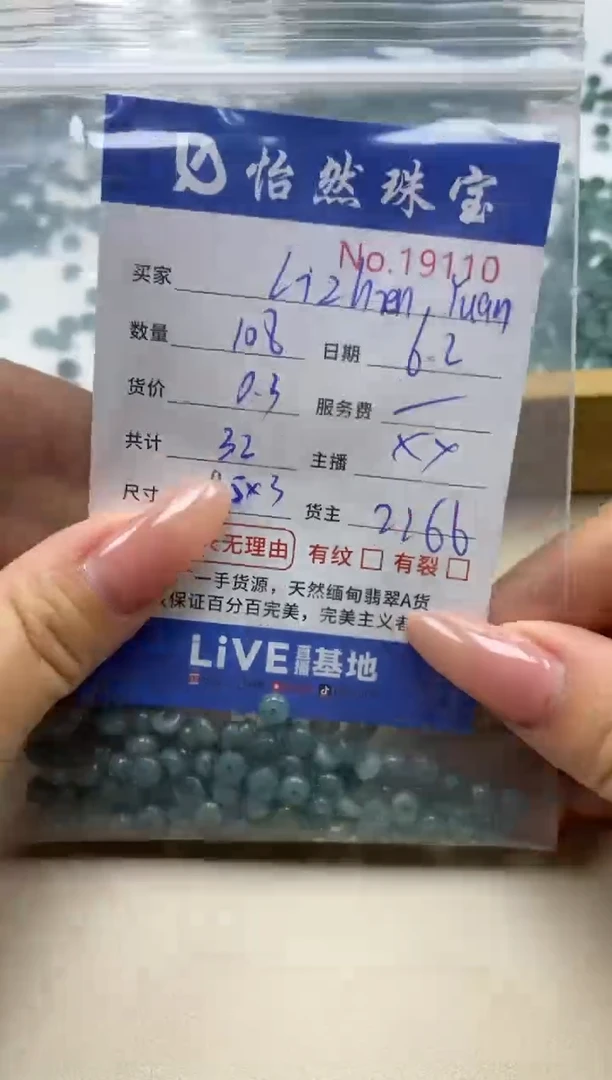 怡然珠宝
No.19110
买家 Lizhen, Yuan
数量 108 日期 6.2
货价 0.3 服务费 —
共计 32 主播 XY
尺寸 5x3 货主 2166
无理由 有纹 有裂
一手货源，天然缅甸翡翠A货
保证百分百完美，完美主义者
LiVE直播基地